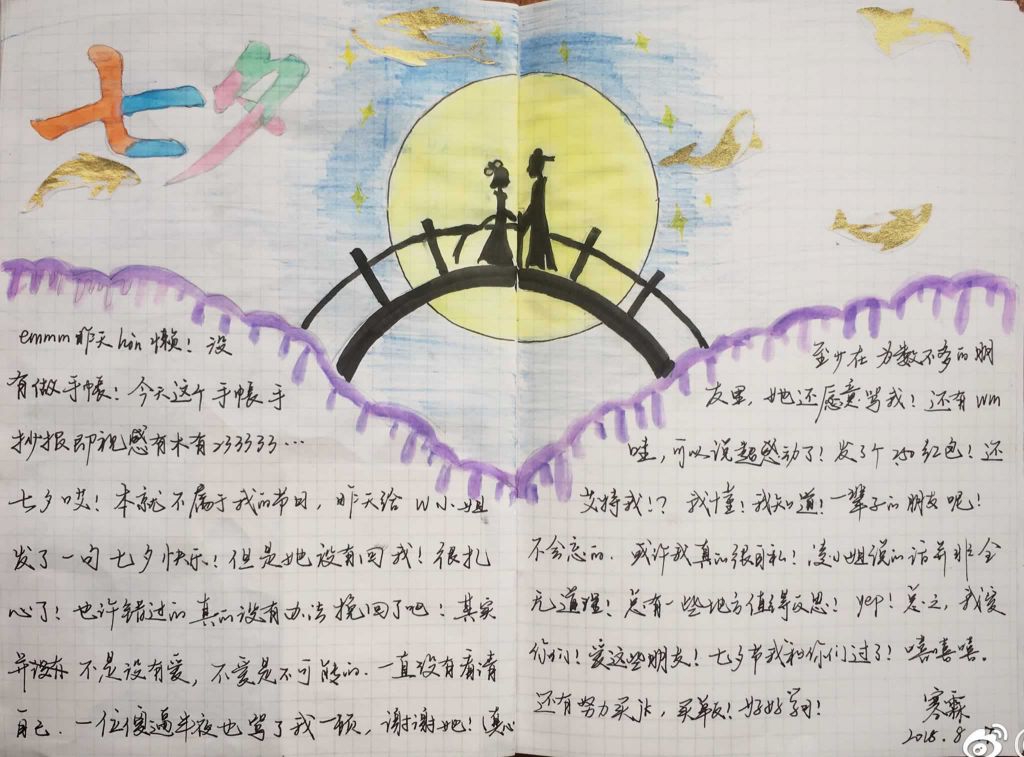 七夕
emmm昨天hin懒！没
有做手帐！今天这个手帐手
抄报即视感有木有233333…
七夕哎！本就不属于我的节日，昨天给W小姐
发了一句七夕快乐！但是她没有回我！很扎
心了！也许错过的真的没有办法挽回了吧！其实
并没有不是没有爱，不爱是不可能的.一直没有看清
自己.一位傻逼半夜也骂了我一顿，谢谢她！真心
至少在为数不多的朋
友里，她还愿意骂我！还有wm
哇，可以说超感动了！发了个250红包！还
艾特我！？我懂！我知道！一辈子的朋友呢！
不会忘的.或许我真的很自私！凌小姐说的话并非全
无道理！总有一些地方值得反思！yep！总之，我爱
你们！爱这些朋友！七夕节我和你们过了！嘻嘻嘻.
还有努力买jk，买单反！好好学习！
寒霖
2018.8